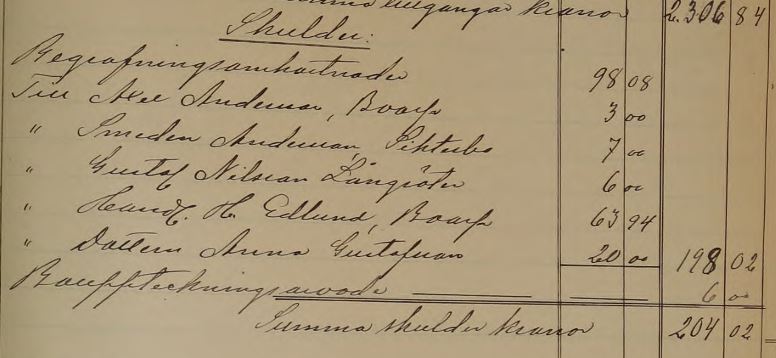 Summa tillgångar kronor 2.306 84
Skulder:
Begrafningsomkostnader 98 08
Till Axel Anderson, Boarp 3 00
" Smeden Anderson 7 00
" Gustaf Nilsson Långröten 6 00
" Handl. H. Edlund, Boarp 63 94
" Dottern Anna Gustafsson 20 00 198 02
Bouppteckningsarvode 6 00
Summa skulder kronor 204 02